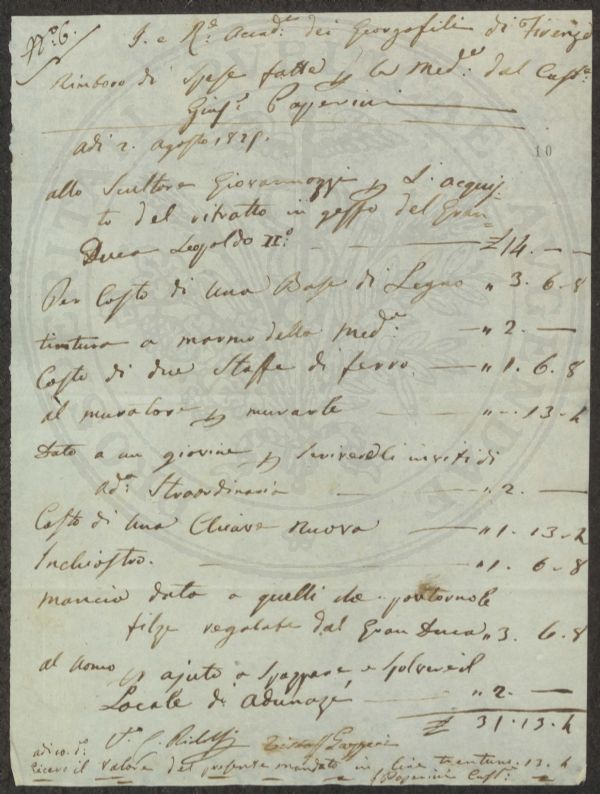 N.º 6.
I. e R.e Accad.a dei Georgofili di Firenze
Rimborso di Spese fatte p la Med.a dal Cust.e
Gius.e Paperini
adi 2. agosto 1825.
10
allo Scultore Giovannozzi p L'acquis-
to del ritratto in gesso del Gran=
Duca Leopoldo II.º — — £ 14. — —
Per Costo di una Base di Legno „ 3. 6. 8
tintura a marmo della Med.a — „ 2. —
Costo di due Staffe di ferro. — „ 1. 6. 8
al muratore p murarle — „ -. 13. 4
Dato a un giovine p scrivere li inviti di
ad.a Straordinaria — „ 2. —
Costo di una Chiave nuova — „ 1. 13. 4
Inchiostro. — „ 1. 6. 8
mancia data a quelli che portorno le
filze regalate dal Gran Duca „ 3. 6. 8
al Uomo p ajuto a Spazzare e Spolverare il
Locale di adunaze — „ 2. —
£ 31. 13. 4
V.o C. Ridolfi Gazzeri
adi co. d.o
Ricevo il valore del presente mandato in lire trentuna. 13. 4
Paperini Cust.e